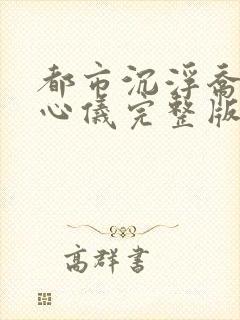 都市沉浮乔
心仪完整版
高群书